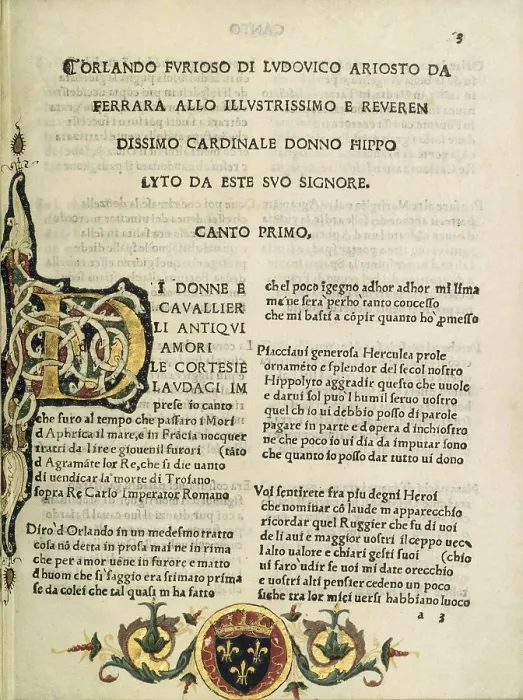 3
ORLANDO FVRIOSO DI LVDOVICO ARIOSTO DA
FERRARA ALLO ILLVSTRISSIMO E REVEREN
DISSIMO CARDINALE DONNO HIPPO
LYTO DA ESTE SVO SIGNORE.
CANTO PRIMO,
DI DONNE E
CAVALLIER
LI ANTIQVI
AMORI
LE CORTESIE
LAVDACI IM
prese io canto
che furo al tempo che passaro i Mori
d Aphrica il mare, e in Frācia nocquer
tratti da l ire e giouenil furori (tāto
d Agramāte lor Re, che si die uanto
di uendicar la morte di Troiano,
sopra Re Carlo Imperator Romano
Diro d Orlando in un medesmo tratto
cosa nō detta in prosa mai ne in rima
che per amor uēne in furore e matto
d huom che si saggio era stimato prima
se da colei che tal quasi m ha fatto
ch el poco īgegno adhor adhor mi lima
me ne sera perho tanto concesso
che mi basti a cōpir quanto ho ꝓmesso
Piacciaui generosa Herculea prole
ornamēto e splendor del secol nostro
Hippolyto aggradir questo che uuole
e darui sol puo l humil seruo uostro
quel ch io ui debbio posso di parole
pagare in parte e d opera d inchiostro
ne che poco io ui dia da imputar sono
che quanto io posso dar tutto ui dono
Voi sentirete fra piu degni Heroi
che nominar cō laude m apparecchio
ricordar quel Ruggier che fu di uoi
de li aui e maggior uostri il ceppo uec
l alto ualore e chiari gesti suoi (chio
ui faro udir se uoi mi date orecchio
e uostri alti pensier cedeno un poco
si che tra lor miei uersi habbiano luoco
a 3